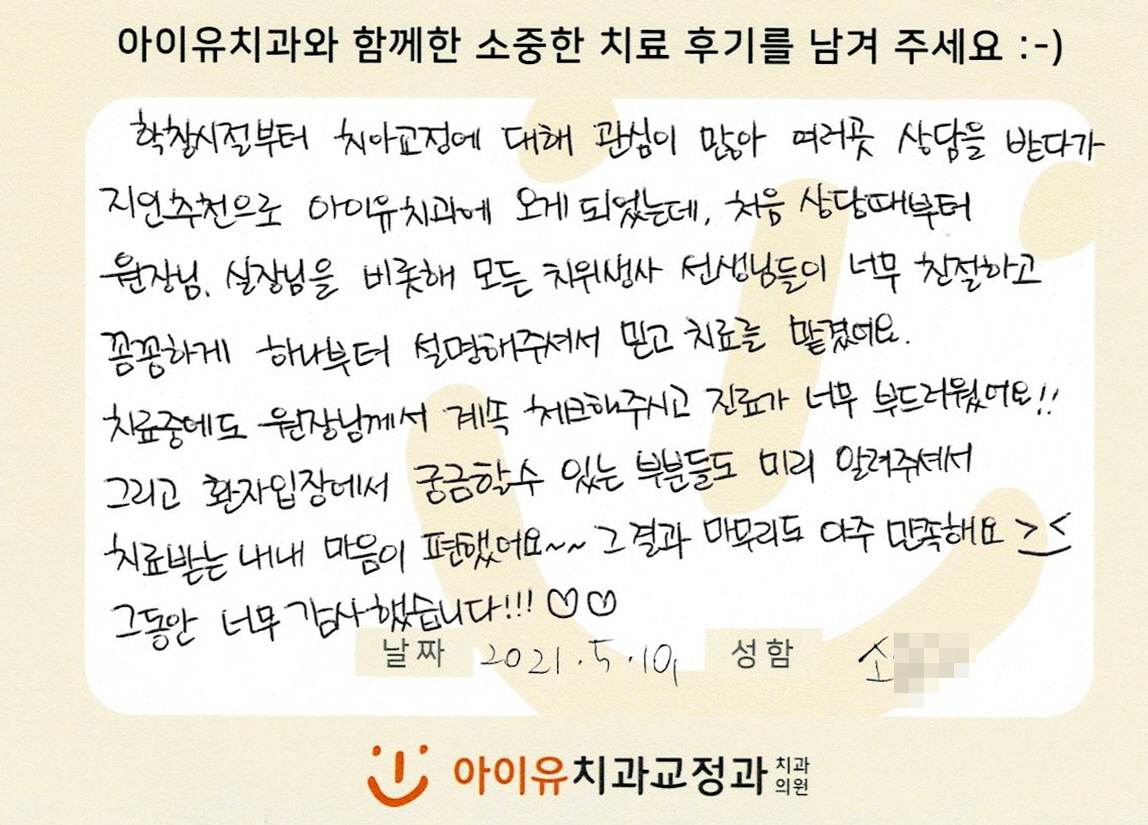 아이유치과와 함께한 소중한 치료 후기를 남겨 주세요 :-)
학창시절부터 치아교정에 대해 관심이 많아 여러곳 상담을 받다가
지인추천으로 아이유치과에 오게 되었는데, 처음 상담때부터
원장님, 실장님을 비롯해 모든 치위생사 선생님들이 너무 친절하고
꼼꼼하게 하나부터 설명해주셔서 믿고 치료를 맡겼어요.
치료중에도 원장님께서 계속 체크해주시고 진료가 너무 부드러웠어요!!
그리고 환자입장에서 궁금할수 있는 부분들도 미리 알려주셔서
치료받는 내내 마음이 편했어요~~ 그 결과 마무리도 아주 만족해요 >_<
그동안 너무 감사했습니다!!! ♡♡
날짜 2021.5.10, 성함 소
아이유치과교정과 치과
의원